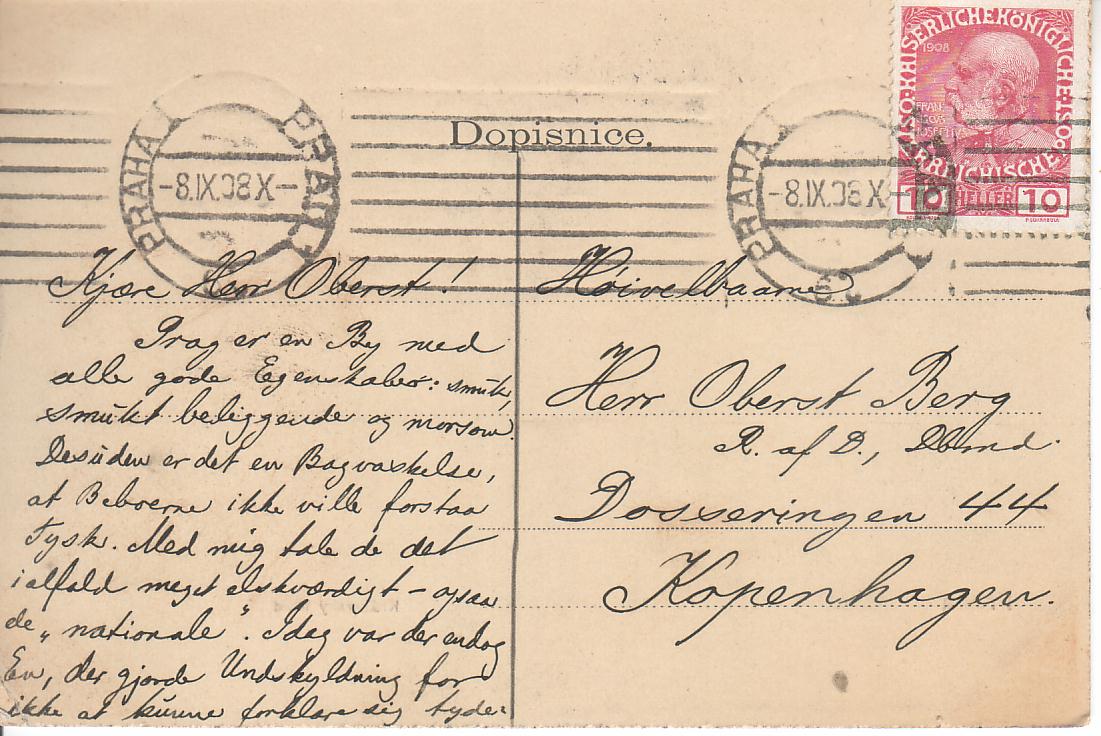 Dopisnice.
PRAHA
PRAG
-8.IX.08 X-
PRAHA
-8.IX.08 X-
KAISERLICHE KÖNIGLICHE
ÖSTERREICHISCHE POST
1908
FRAN
CISCUS
IOSEPHUS
10 HELLER 10
Kjære Herr Oberst!
Prag er en By med
alle gode Egenskaber: smuk,
smukt beliggende og morsom.
Desuden er det en Bagvaskelse,
at Beboerne ikke ville forstaa
Tysk. Med mig tale de det
ialfald meget elskværdigt – ogsaa
de „nationale". Idag var der endog
En, der gjorde Undskyldning for
ikke at kunne forklare sig tyde:
Høivelbaarne
Herr Oberst Berg
R. af D., Dbmd.
Dosseringen 44
Kopenhagen.